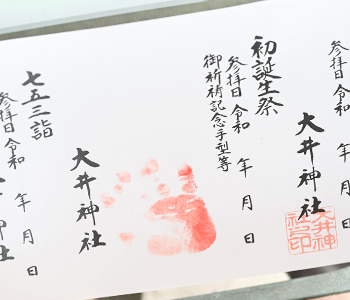 参拝日 令和
大井神社
大井神社之印
初誕生祭
参拝日 令和 年 月 日
御祈祷記念手型等
大井神社
七五三詣
参拝日 令和 年 月 日